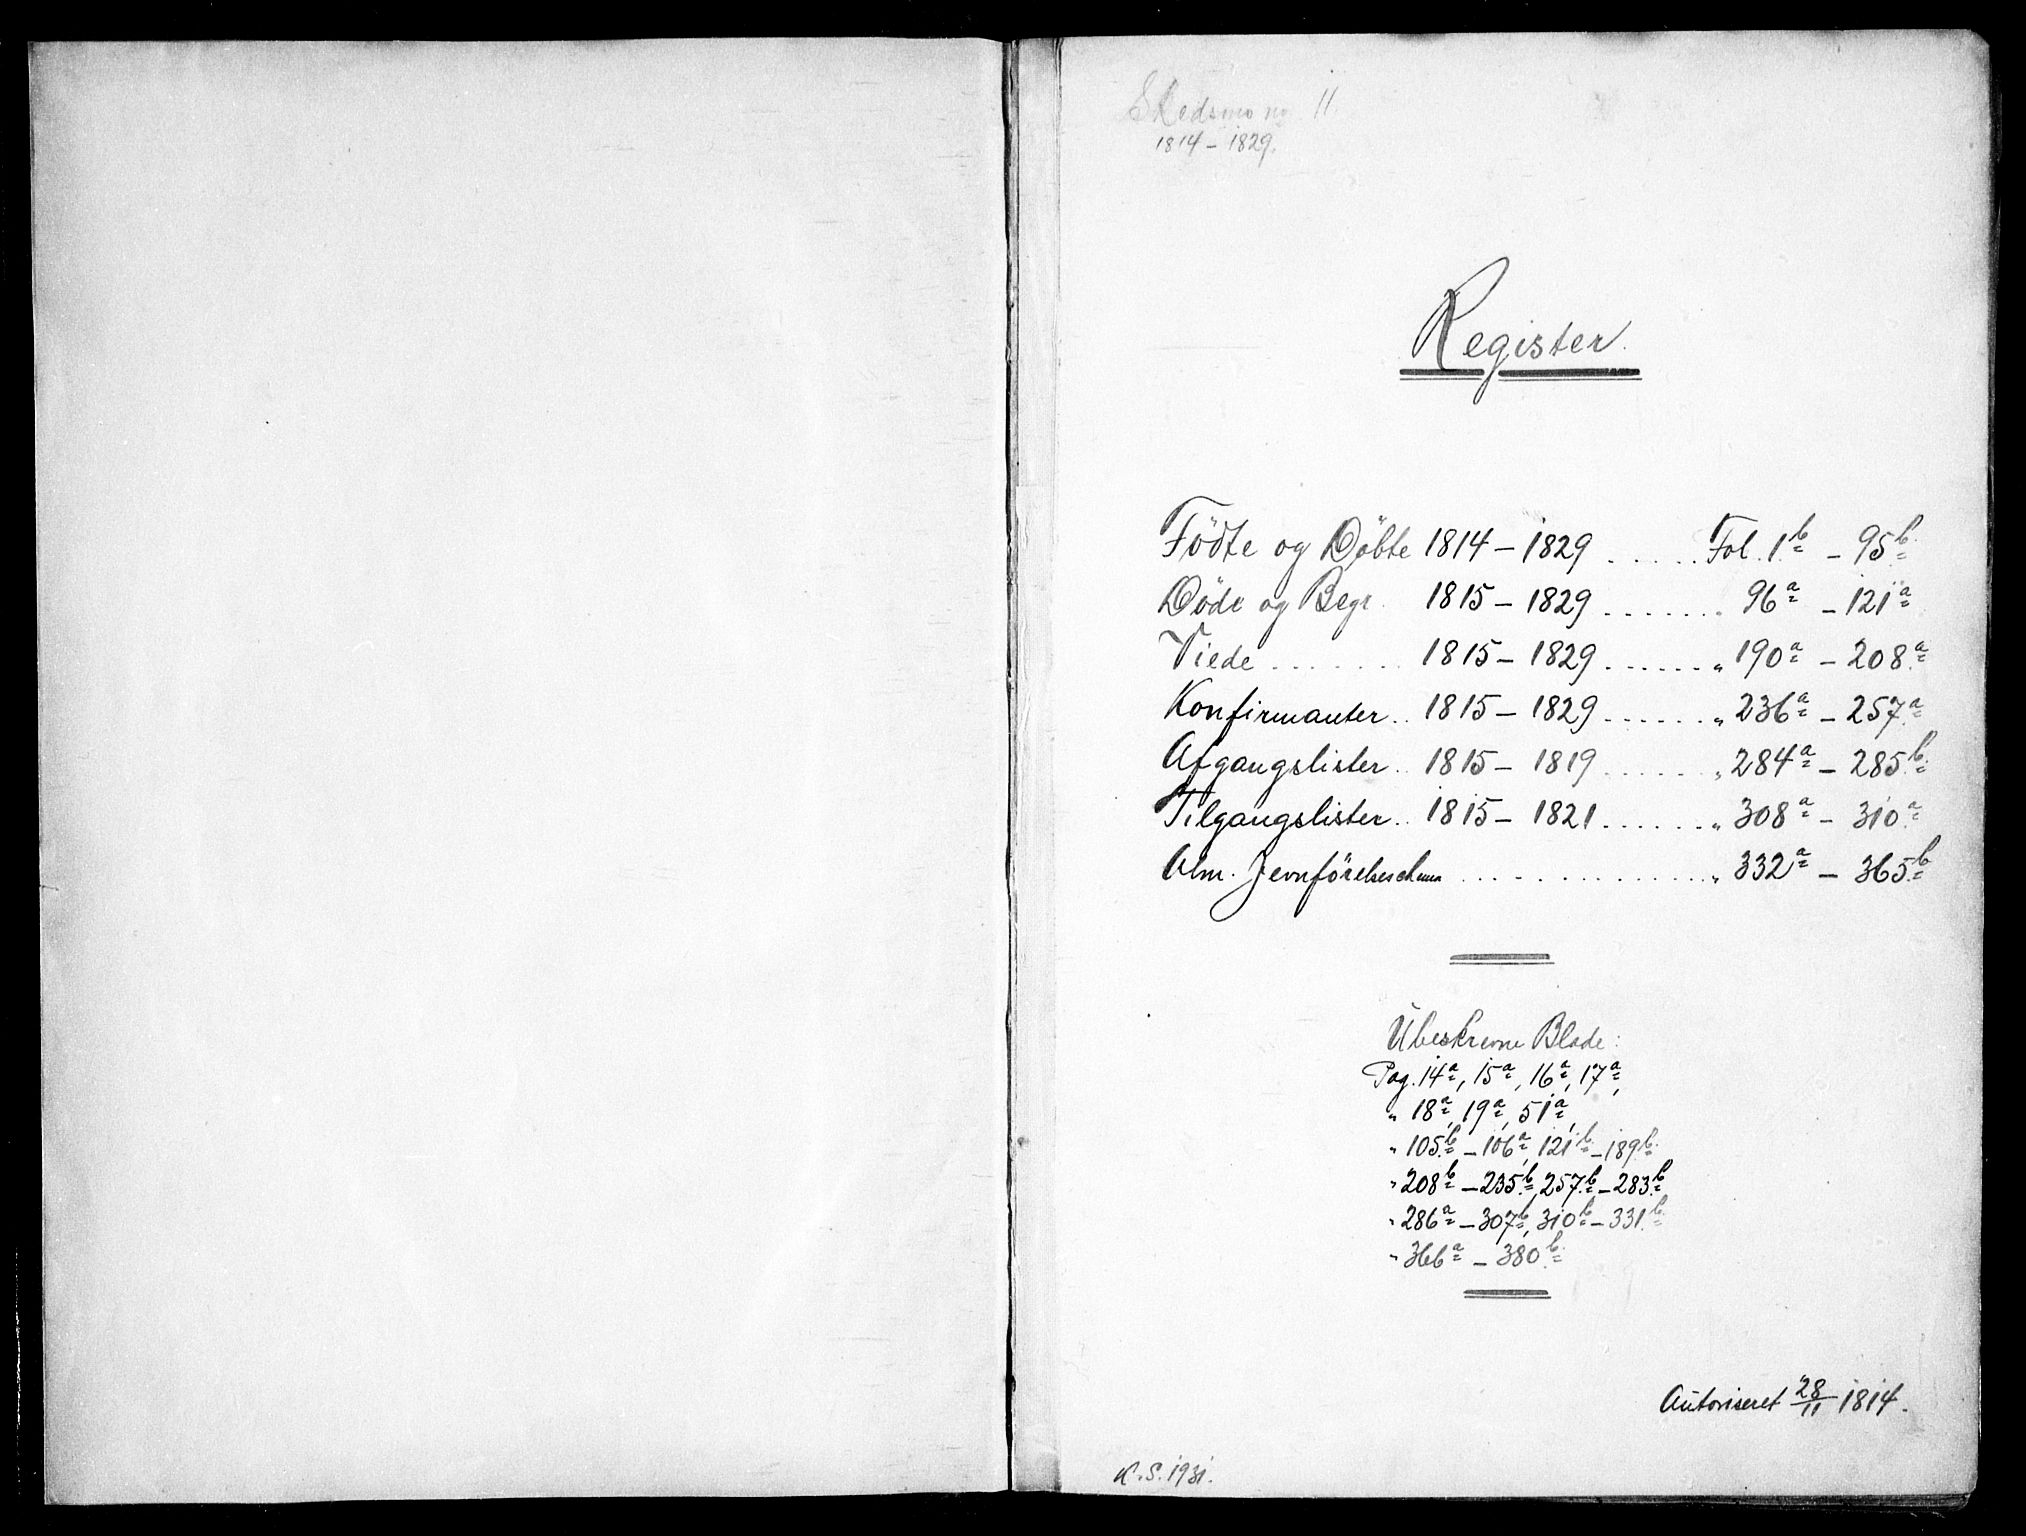 Skedsmo no 11.
1814 – 1829.
Register.
Födte og Döbte 1814 – 1829 ..... Fol. 1b – 95b.
Döde og Begr. 1815 – 1829 ....... 96a – 121a
Viede ....... 1815 – 1829 ...... „ 190a – 208a
Konfirmanter .. 1815 – 1829 ...... „ 236a – 257a
Afgangslister .. 1815 – 1819 ...... „ 284a – 285b.
Tilgangslister .. 1815 – 1821 ...... „ 308a – 310a
Alm. Jevnförelses ............... „ 332a – 365b
Ubeskrevne Blade:
Pag. 14a, 15a, 16a, 17a,
„ 18a, 19a, 51a,
„ 105b – 106a, 121b – 189b.
„ 208b – 235b, 257b – 283b
„ 286a – 307b, 310b – 331b.
„ 366a – 380b.
Autoriseret 28/11 1814.
K.S. 1931.